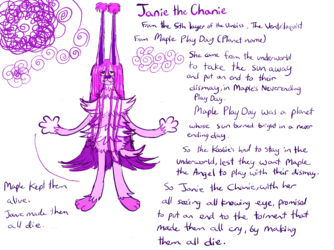 Janie the Chanie
From the 5th layer of the Unessia, The Ventriloquist
From Maple Play Day (Planet name)
She came from the underworld
to take the sun away
and put an end to their
dismay, in Maple's Neverending
Play Day.
Maple Play Day was a planet
whose sun burned bright in a never
ending day.
So the Kooties had to stay in the
underworld, lest they want Maple
the Angel to play with their dismay.
So Janie the Chanie, with her
all seeing all knowing eye, promised
to put an end to the torment that
made them all cry, by making
them all die.
Maple kept them
alive.
Janie made them
all die.